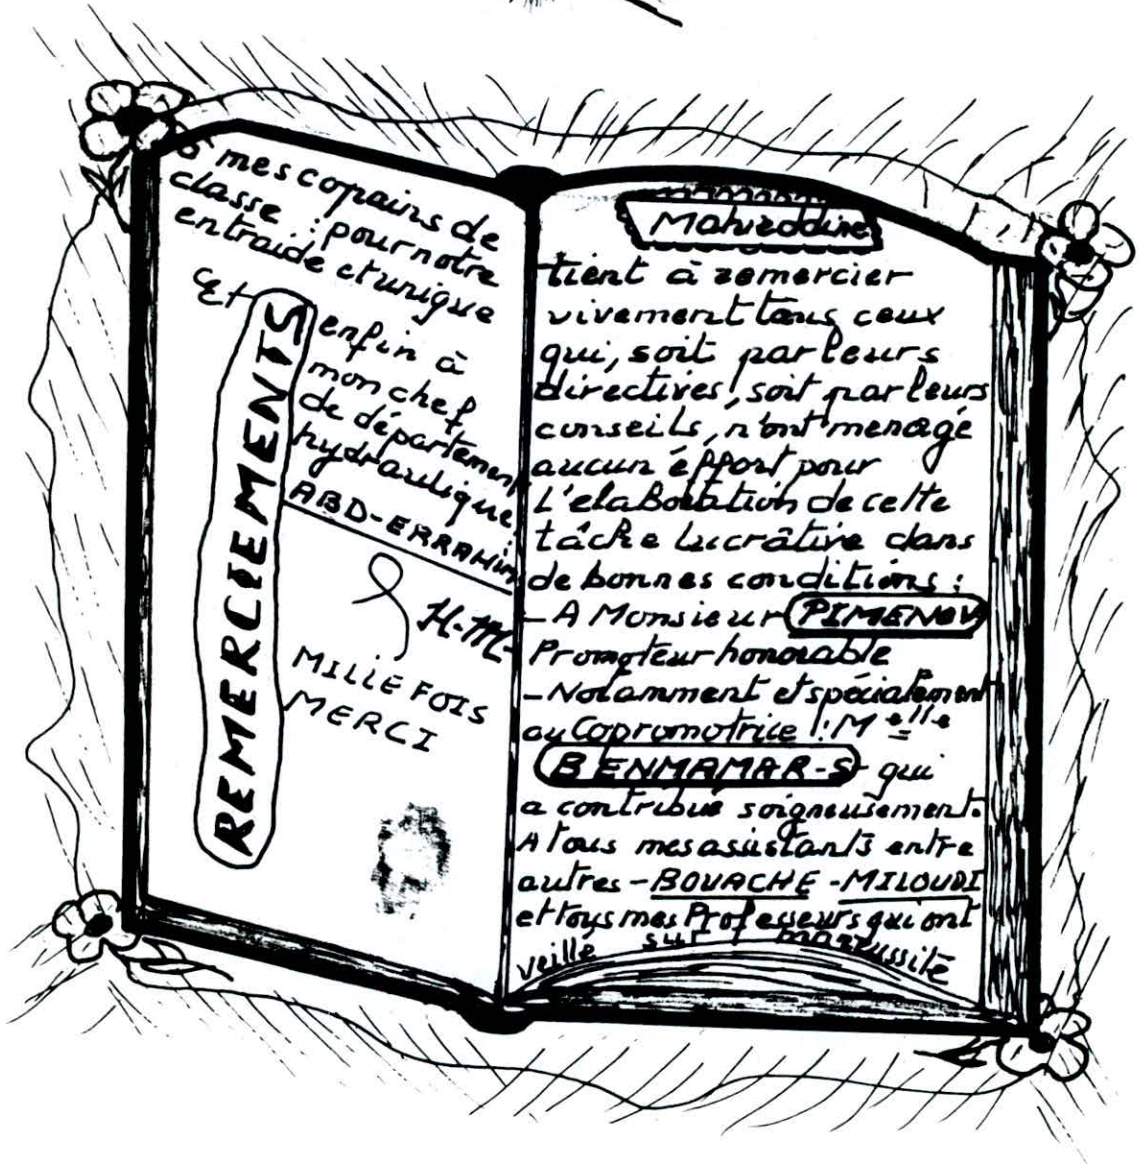 à mes copains de
classe : pour notre
entraide et unique
Et enfin à
mon chef
de département
hydraulique
ABD-ERRAHIM
H-M-
MILLE FOIS
MERCI
REMERCIEMENTS
Mahieddine
tient à remercier
vivement tous ceux
qui, soit par leurs
directives, soit par leurs
conseils, n'ont menagé
aucun éffort pour
L'elaboration de cette
tâche lucrâtive dans
de bonnes conditions :
- A Monsieur PIMENOV
Promoteur honorable
- Notamment et spécialement
au Copromotrice : Melle
BENMAMAR-S- qui
a contribué soigneusement.
A tous mes assistants entre
autres - BOUACHE - MILOUDI
et tous mes Professeurs qui ont
veille sur ma reussité